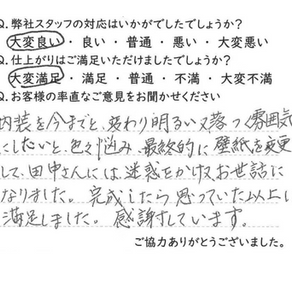 Q.弊社スタッフの対応はいかがでしたでしょうか?
大変良い・良い・普通・悪い・大変悪い
Q.仕上がりはご満足いただけましたでしょうか?
大変満足・満足・普通・不満・大変不満
Q.お客様の率直なご意見をお聞かせください
内装を今までと、変わり明るい又落つく雰囲気
にしたいと、色々悩み、最終的に壁紙を変更
して、田中さんには、迷惑をかけ、お世話に
なりました。完成したら思っていた以上に
満足しました。感謝しています。
ご協力ありがとうございました。